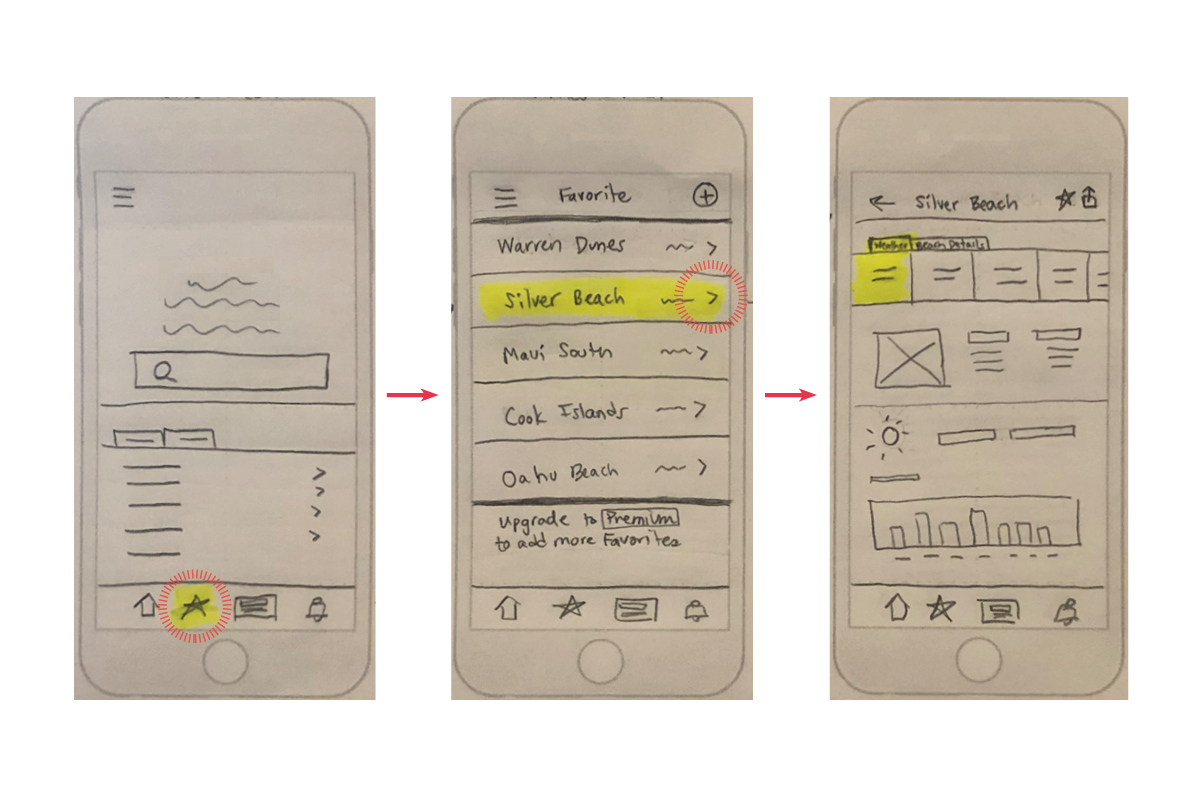 Favorite
Warren Dunes
Silver Beach
Maui South
Cook Islands
Oahu Beach
Upgrade to Premium
to add more Favorites
Silver Beach
Weather Beach Details